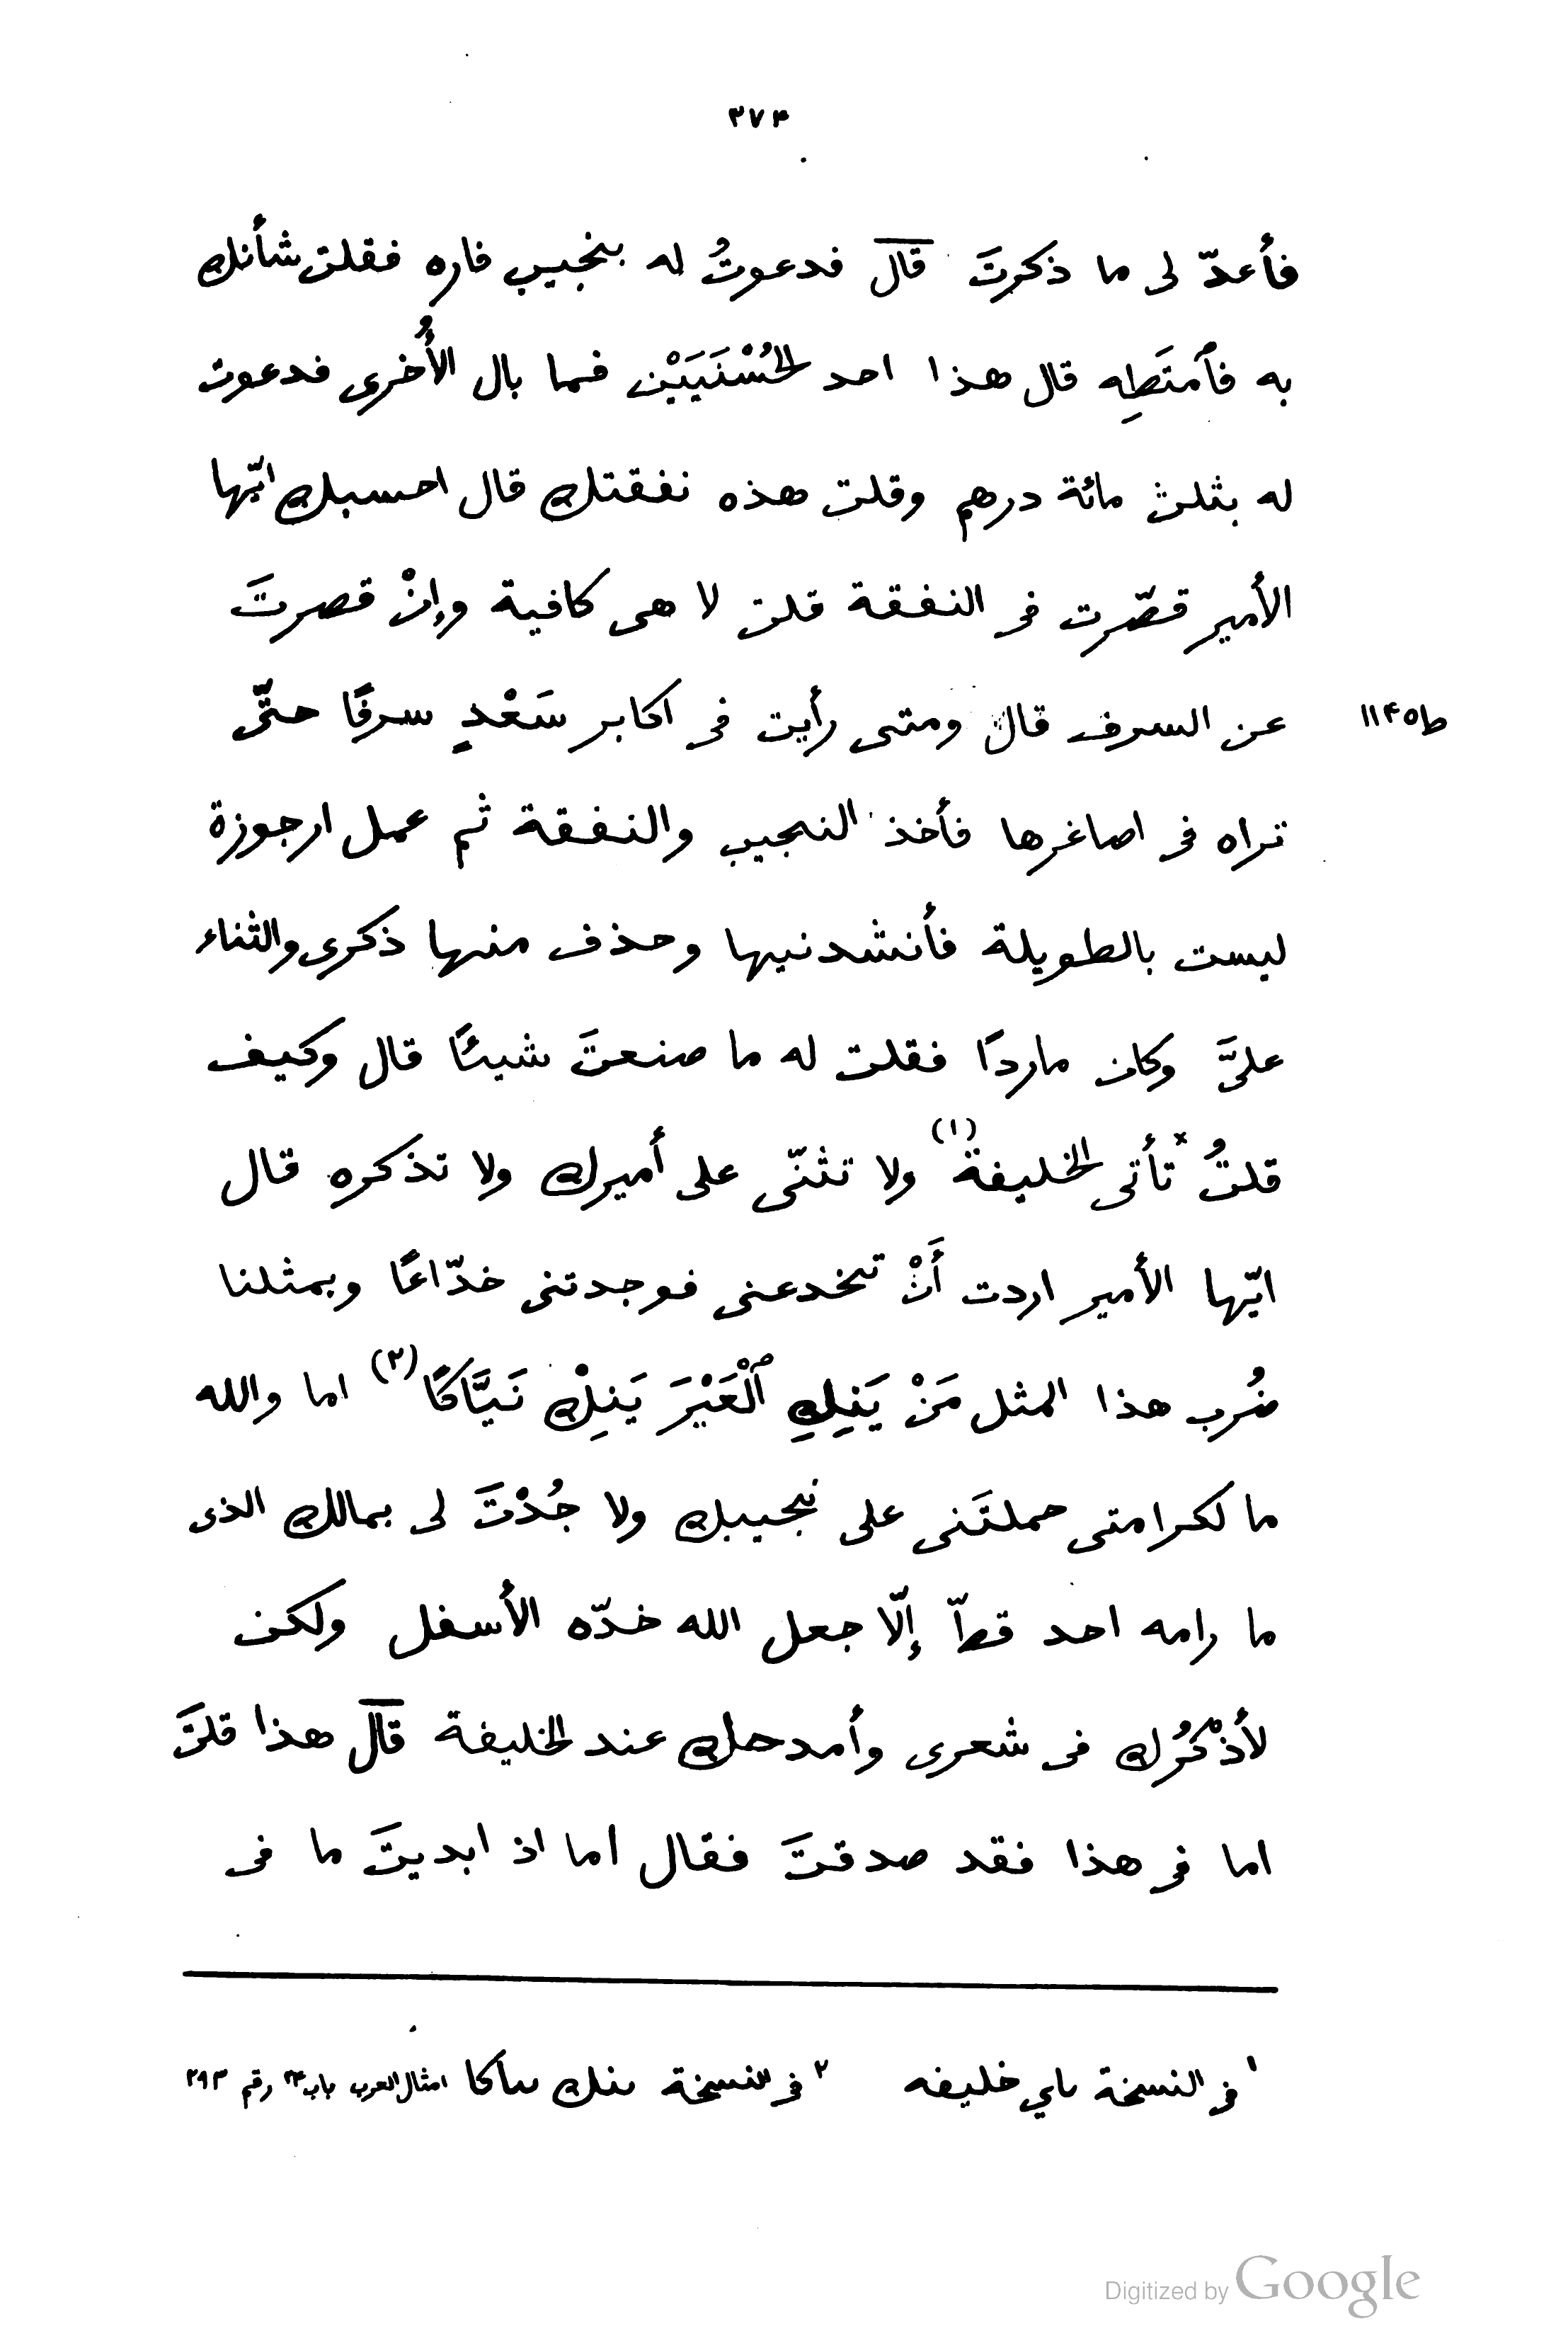 ٣٧٤
فأعدّ لى ما ذكرتَ قال فدعوتُ له بنجيب فاره فقلت شأنك
به فٱمتَطِه قال هذا احد الحُسْنَيَيْن فما بال الأُخرى فدعوت
له بثلث مائة درهم وقلت هذه نفقتك قال احسبك ايّها
الأمير قصّرت فى النفقة قلت لا هى كافية وإنْ قصرتَ
عن السرف قال ومتى رأيت فى اكابر سَعْدٍ سرفًا حتّى ط١١٤٥
تراه فى اصاغرها فأخذ النجيب والنفقة ثم عمل ارجوزة
ليست بالطويلة فأنشدنيها وحذف منها ذكرى والثناء
علىَّ وكان ماردًا فقلت له ما صنعتَ شيئًا قال وكيف
قلتُ * تأتى الخليفة (١) ولا تثنّى على أميرك ولا تذكره قال
ايّها الأمير اردت أَنْ تخدعنى فوجدتنى خدّاعًا وبمثلنا
ضُرب هذا المثل مَنْ يَنِكِ ٱلْعَيْرَ يَنِكْ نَيَّاكًا (٢) اما والله
ما لكرامتى حملتَنى على نجيبك ولا جُدْتَ لى بمالك الذى
ما رامه احد قطّ إلّا جعل الله خدّه الأسفل ولكن
لأذْكُرُك فى شعرى وأمدحك عند الخليفة قال هذا قلتَ
اما فى هذا فقد صدقتَ فقال اما اذ ابديتَ ما فى
١ فى النسخة ىاىي خليفه ٢ فى النسخة ىنك ىىاكا امثال العرب باب ٢٤ رقم ٢٩٣
Digitized by Google